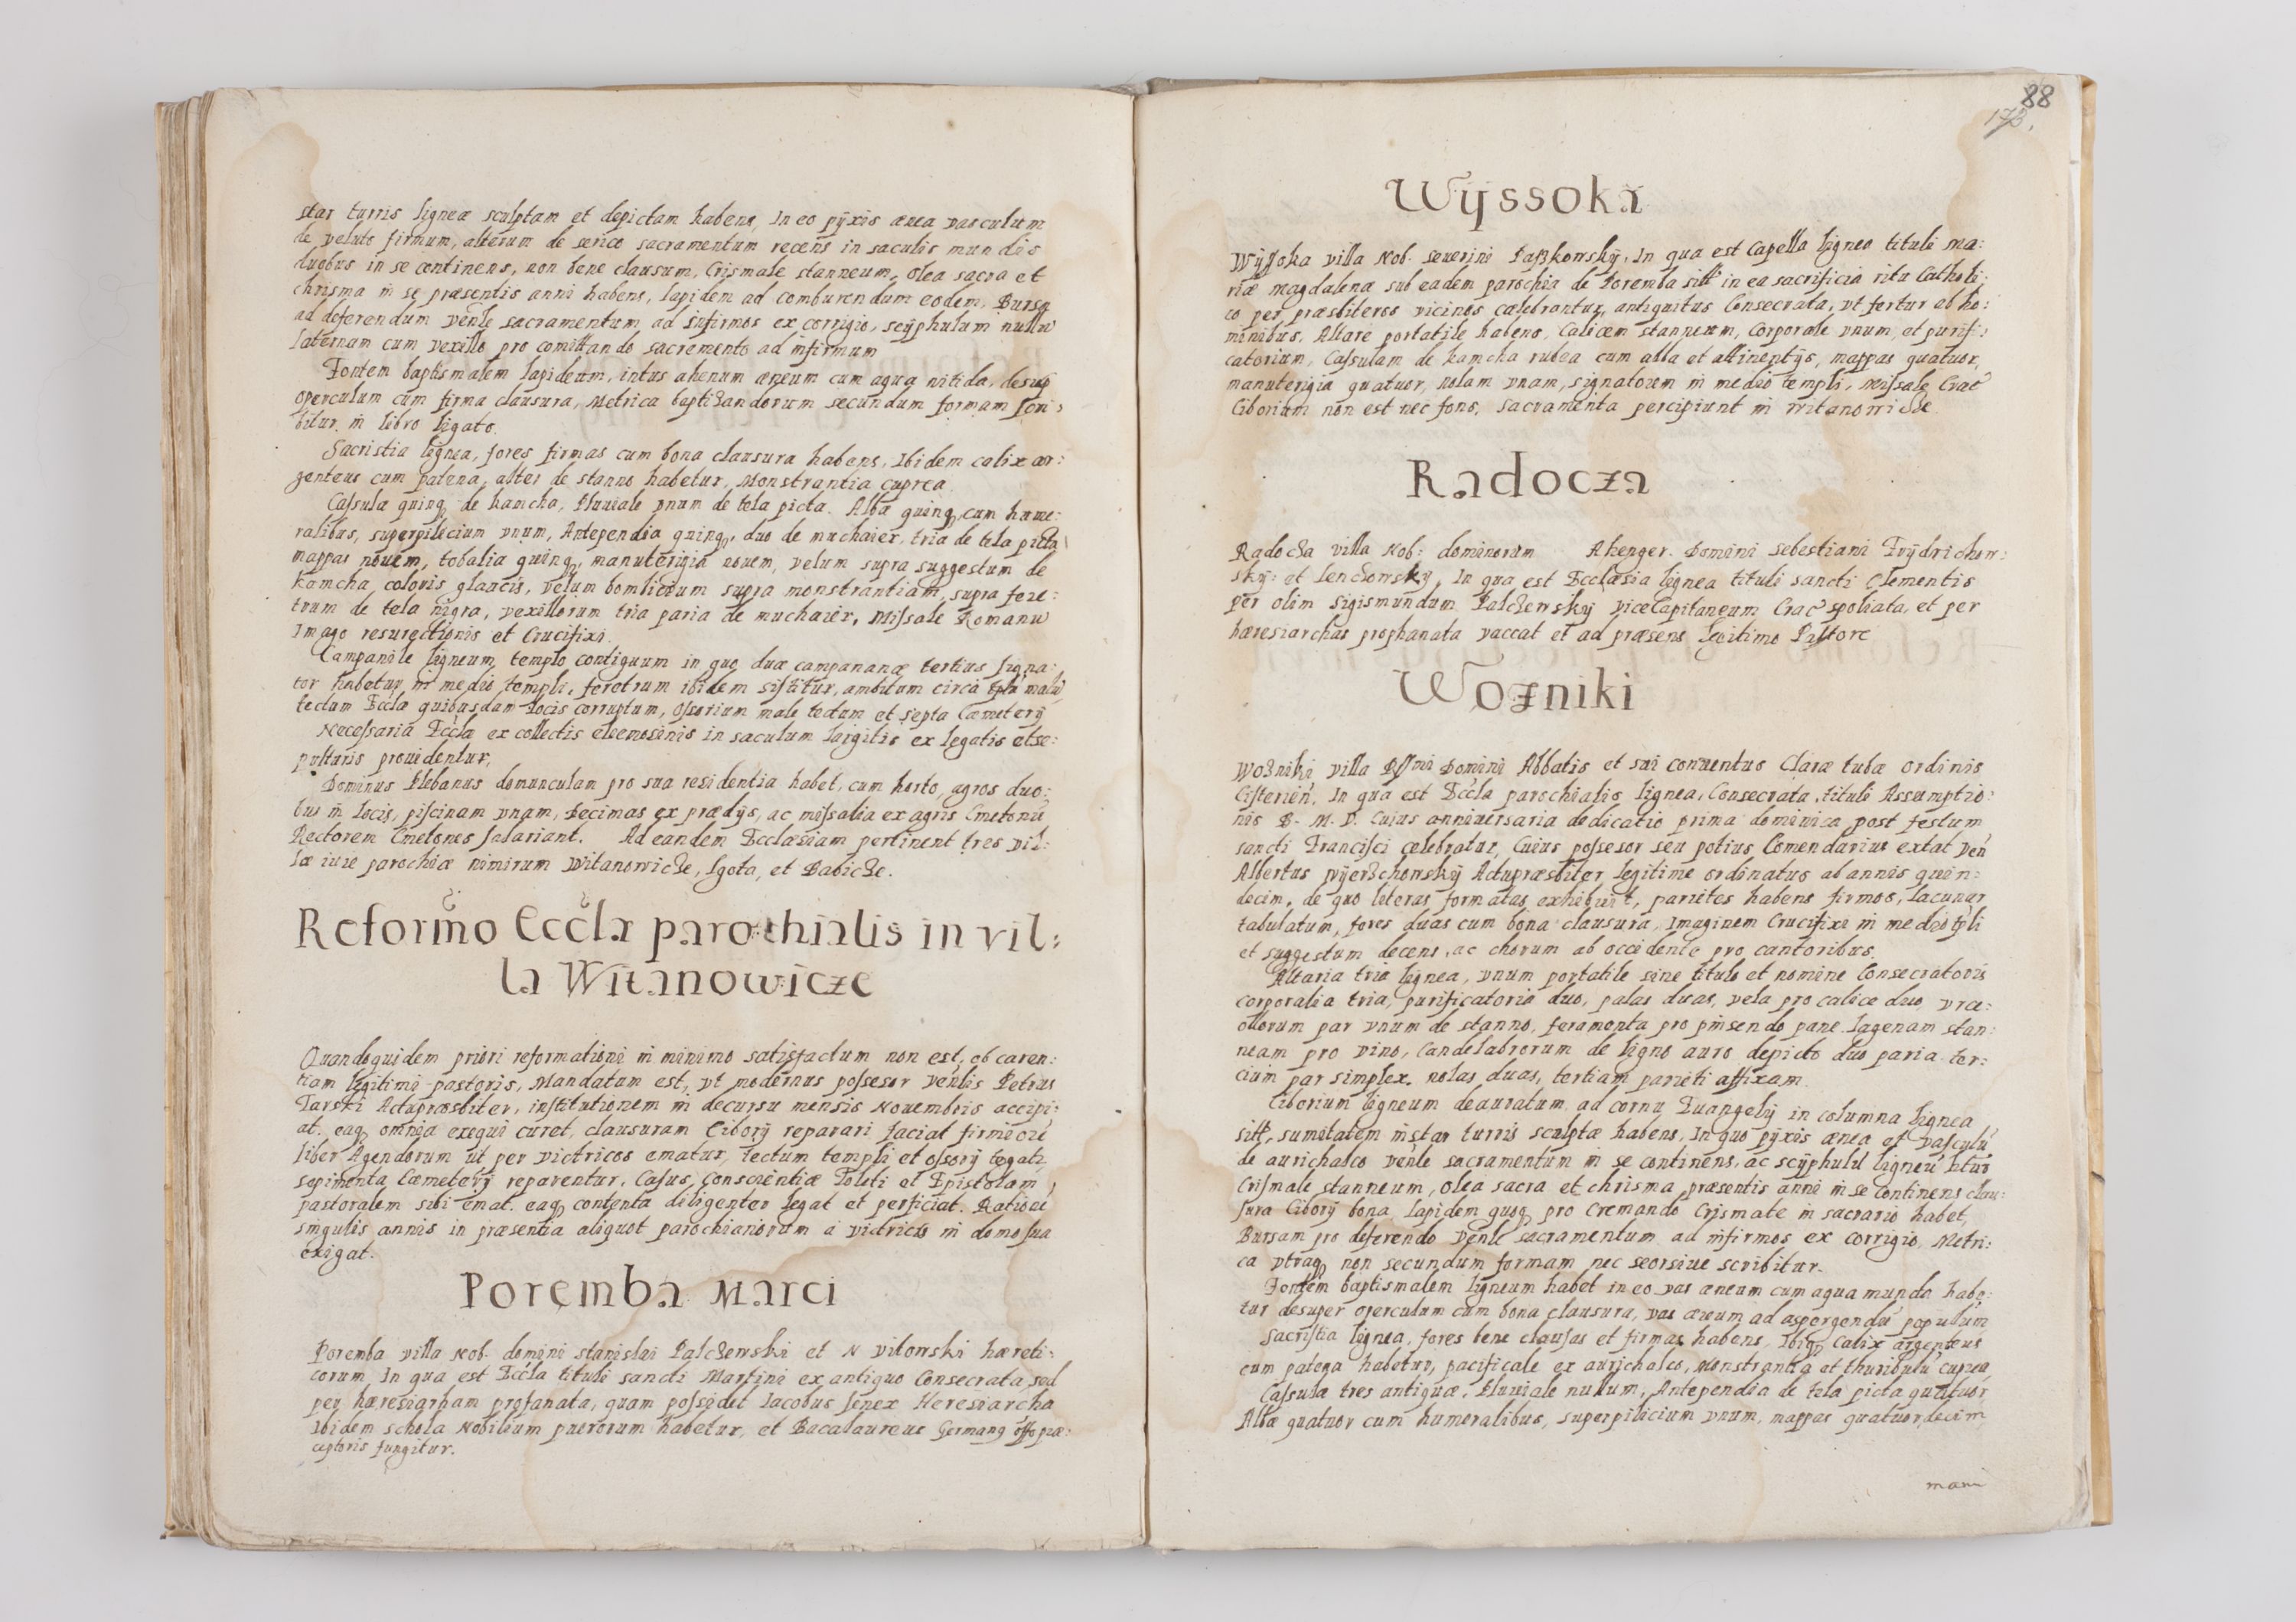 star turris ligneæ sculptam et depictam habens, In eo pÿxis ænea vasculum
de veluto firmum, alterum de serico sacramentum recens in saculis mundis
duobus in se continens, non bene clausum, Crismale stanneum, Olea sacra et
chrisma in se præsentis anni habens, lapidem ad comburendum eodem, Bursa
ad deferendum Venle sacramentum ad infirmos ex corrigio, scÿphulum nullū
laternam cum vexillo pro comittando sacremento ad infirmum
Fontem baptismalem lapideum, intus ahenum æneum cum aqua nitida, desup
operculum cum firma clausura, Metrica baptizandorum secundum formam scri:
bitur in libro ligato.
Sacristia lignea, fores firmas cum bona clausura habens, Ibidem calix ar:
genteus cum patena, alter de stanno habetur, Monstrantia cuprea
Casula quinq de kamcha, Pluuiale vnum de tela picta. Albæ quinq cum hume:
ralibus, superpilicium vnum, Antependia quinq, duo de muchaier, tria de tela picta
mappas nouem, tobalia quinq, manuterigia nouem, velum supra suggestum de
kamcha coloris glaucis, velum bombicium supra monstrantiam, supra fere:
trum de tela nigra, vexillorum tria paria de muchaier, Missale Romanū
Imago resurectionis et Crucifixi.
Campanile ligneum templo contiguum in quo duæ campananæ tertius signa:
tor habetur in medio templi, feretrum ibidem sistitur, ambitum circa tplū malū
tectum Eccłæ quibusdam locis corruptum, Ossorium male tectum et septa Cæmeterÿ
Necessaria Eccłæ ex collectis eleemosinis in saculum largitis ex legatis et se:
pulturis prouidentur,
Dominus Plebanus domunculam pro sua residentia habet, cum horto, agros duo:
bus in locis, piscinam vnam, Decimas ex prædÿs, ac missalia ex agris Cmetonū
Rectorem Cmetones salariant. Ad eandem Ecclæsiam pertinent tres vil:
læ iure parochiæ nimirum Witanowicze, Lgota, et Babicze.
Reformo Eccla parochialis in vil:
la Witanowicze
Quandoquidem priori reformationi in minimo satisfactum non est, ob caren:
tiam legitimi pastoris, Mandatum est, vt modernus possesor venlis Petrus
Tarski Actupræsbiter, institutionem in decursu mensis Nouembris accipi:
at. eaq omnia exequi curet, clausuram Ciborÿ reparari faciat firmiori
liber Agendorum ut per victricos ematur, Tectum templi et ossorÿ tegatr,
sepimenta Cæmeterÿ reparentur, Casus Conscientiæ Toleti et Epistolam
pastoralem sibi emat. eaq contenta diligenter legat et perficiat. Rationē
singulis annis in præsentia aliquot parochianorum a victricis in domo sua
exigat.
Poremba Marci
Poremba villa Nob. domini stanislai Palczewski et N vitowski hæreti:
corum, In qua est Eccla tituli sancti Martini ex antiquo Consecrata, sed
per hæresiarham profanata, quam possidet Iacobus senex Heresiarcha
Ibidem schola Nobilium puerorum habetur, et Bacalaureus Germang offo præ:
ceptoris fungitur.
88
173.
Wÿssoka
Wÿssoka villa Nob. seuerini Paßkowskÿ. In qua est Capella lignea tituli Ma:
riæ Magdalenæ sub eadem parochia de Poremba sitt in ea sacrificia ritu Catholi:
co per præsbiteros vicinos cælebrantur, antiquitus Consecrata, vt fertur ab ho:
minibus, Altare portatile habens, Calicem stanneum, Corporale vnum, et purifi:
catorium, Casulam de kamcha rubea cum alba et attinentÿs, mappas quatuor,
manuterigia quatuor, nolam vnam, signatorem in medio templi, Missale Crac
Ciborium non est nec fons, Sacramenta percipiunt in Witanowicze
Radocza
Radocza villa Nob: dominorum Akenger. Domini Sebestiani Frÿdrichow:
skÿ: et Lenczowskÿ, In qua est Ecclæsia lignea tituli sancti Clementis
per olim Sigismundum Palczewskÿ viceCapitaneum Crac spoliata, et per
hæresiarchas prophanata vaccat et ad præsens legitimo Pastore
Wozniki
Wozniki villa Rssmi Domini Abbatis et sui conuentus Claræ tubæ ordinis
Cistercien, In qua est Eccla parochialis lignea, Consecrata, tituli Assumptio:
nis B. M. V. Cuius anniuersaria dedicatio prima dominica post festum
sancti Francisci celebratur, Cuius possesor seu potius Comendarius extat Ven
Albertus Wÿerzchowskÿ Actupræsbiter legitime ordinatus ab annis quin:
decim, de quo literas formatas exhibuit, parietes habens firmos, lacunar
tabulatum, fores duas cum bona clausura, Imaginem Crucifixi in medio tpli
et suggestum decens, ac chorum ab occidente pro cantoribus.
Altaria tria lignea, vnum portatile sine titulo et nomine Consecratoris
corporalia tria, purificatoria duo, palas duas, vela pro calice duo, vrce:
ollorum par vnum de stanno, feramenta pro pinsendo pane lagenam stan:
neam pro vino, Candelabrorum de ligno auro depicto duo paria ter:
cium par simplex. nolas duas, tertiam parieti affixam
Ciborium ligneum deauratum ad cornu Euangelÿ in columna lignea
sitt, sumitatem instar turris sculptæ habens, In quo pÿxis ænea et vasculū
de aurichalco venle sacramentum in se continens, ac scÿphulū ligneū hbtur
Crismale stanneum, Olea sacra et chrisma præsentis anni in se continens clau:
sura Ciborÿ bona, lapidem quoq pro cremando Crismate in sacrario habet,
Bursam pro deferendo Venle sacramentum ad infirmos ex corrigio, Metri:
ca vtraq non secundum formam nec seorsiue scribitur.
Fontem baptismalem ligneum habet in eo vas æneum cum aqua munda habe:
tur desuper operculum cum bona clausura, vas æreum ad aspergendū populum
Sacristia lignea, fores bene clausas et firmas habens, Ibiq Calix argenteus
cum patena habetur, pacificale ex aurichalco, Monstrantia et thuribulū cuprea
Casula tres antiquæ, Pluuiale nullum, Antependia de tela picta quatuor,
Albæ quatuor cum humeralibus, superpilicium vnum, mappas quatuordecim
manu